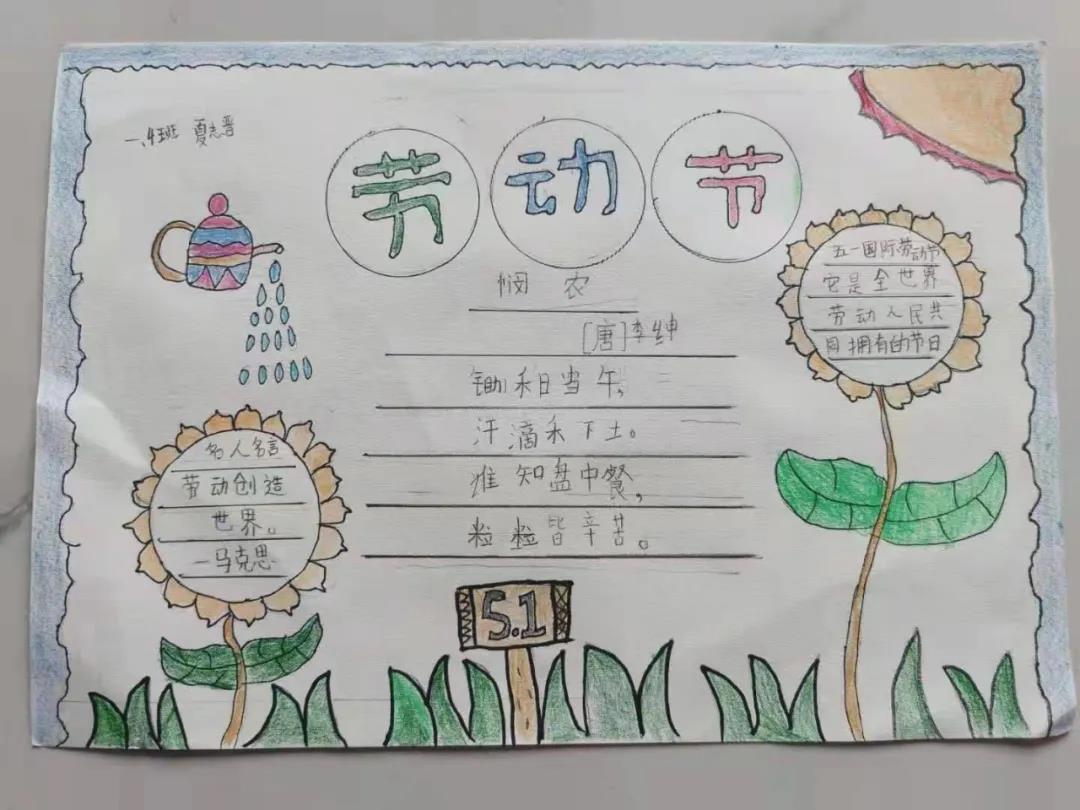 一、4班 夏志晋
劳动节
悯农
[唐]李绅
锄禾日当午,
汗滴禾下土。
谁知盘中餐,
粒粒皆辛苦。
五一国际劳动节
它是全世界
劳动人民共
同拥有的节日
名人名言
劳动创造
世界。
—马克思
5.1